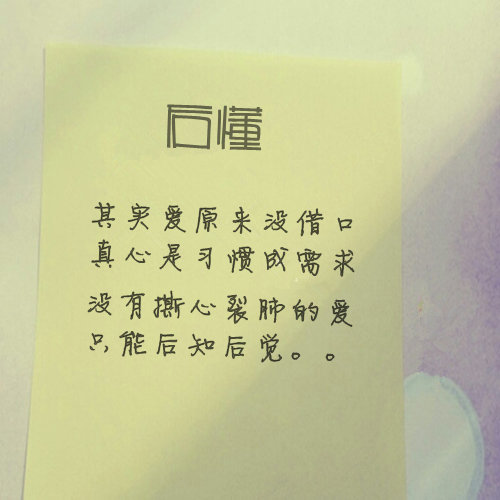 后懂
其实爱原来没借口
真心是习惯成需求
没有撕心裂肺的爱
只能后知后觉。。